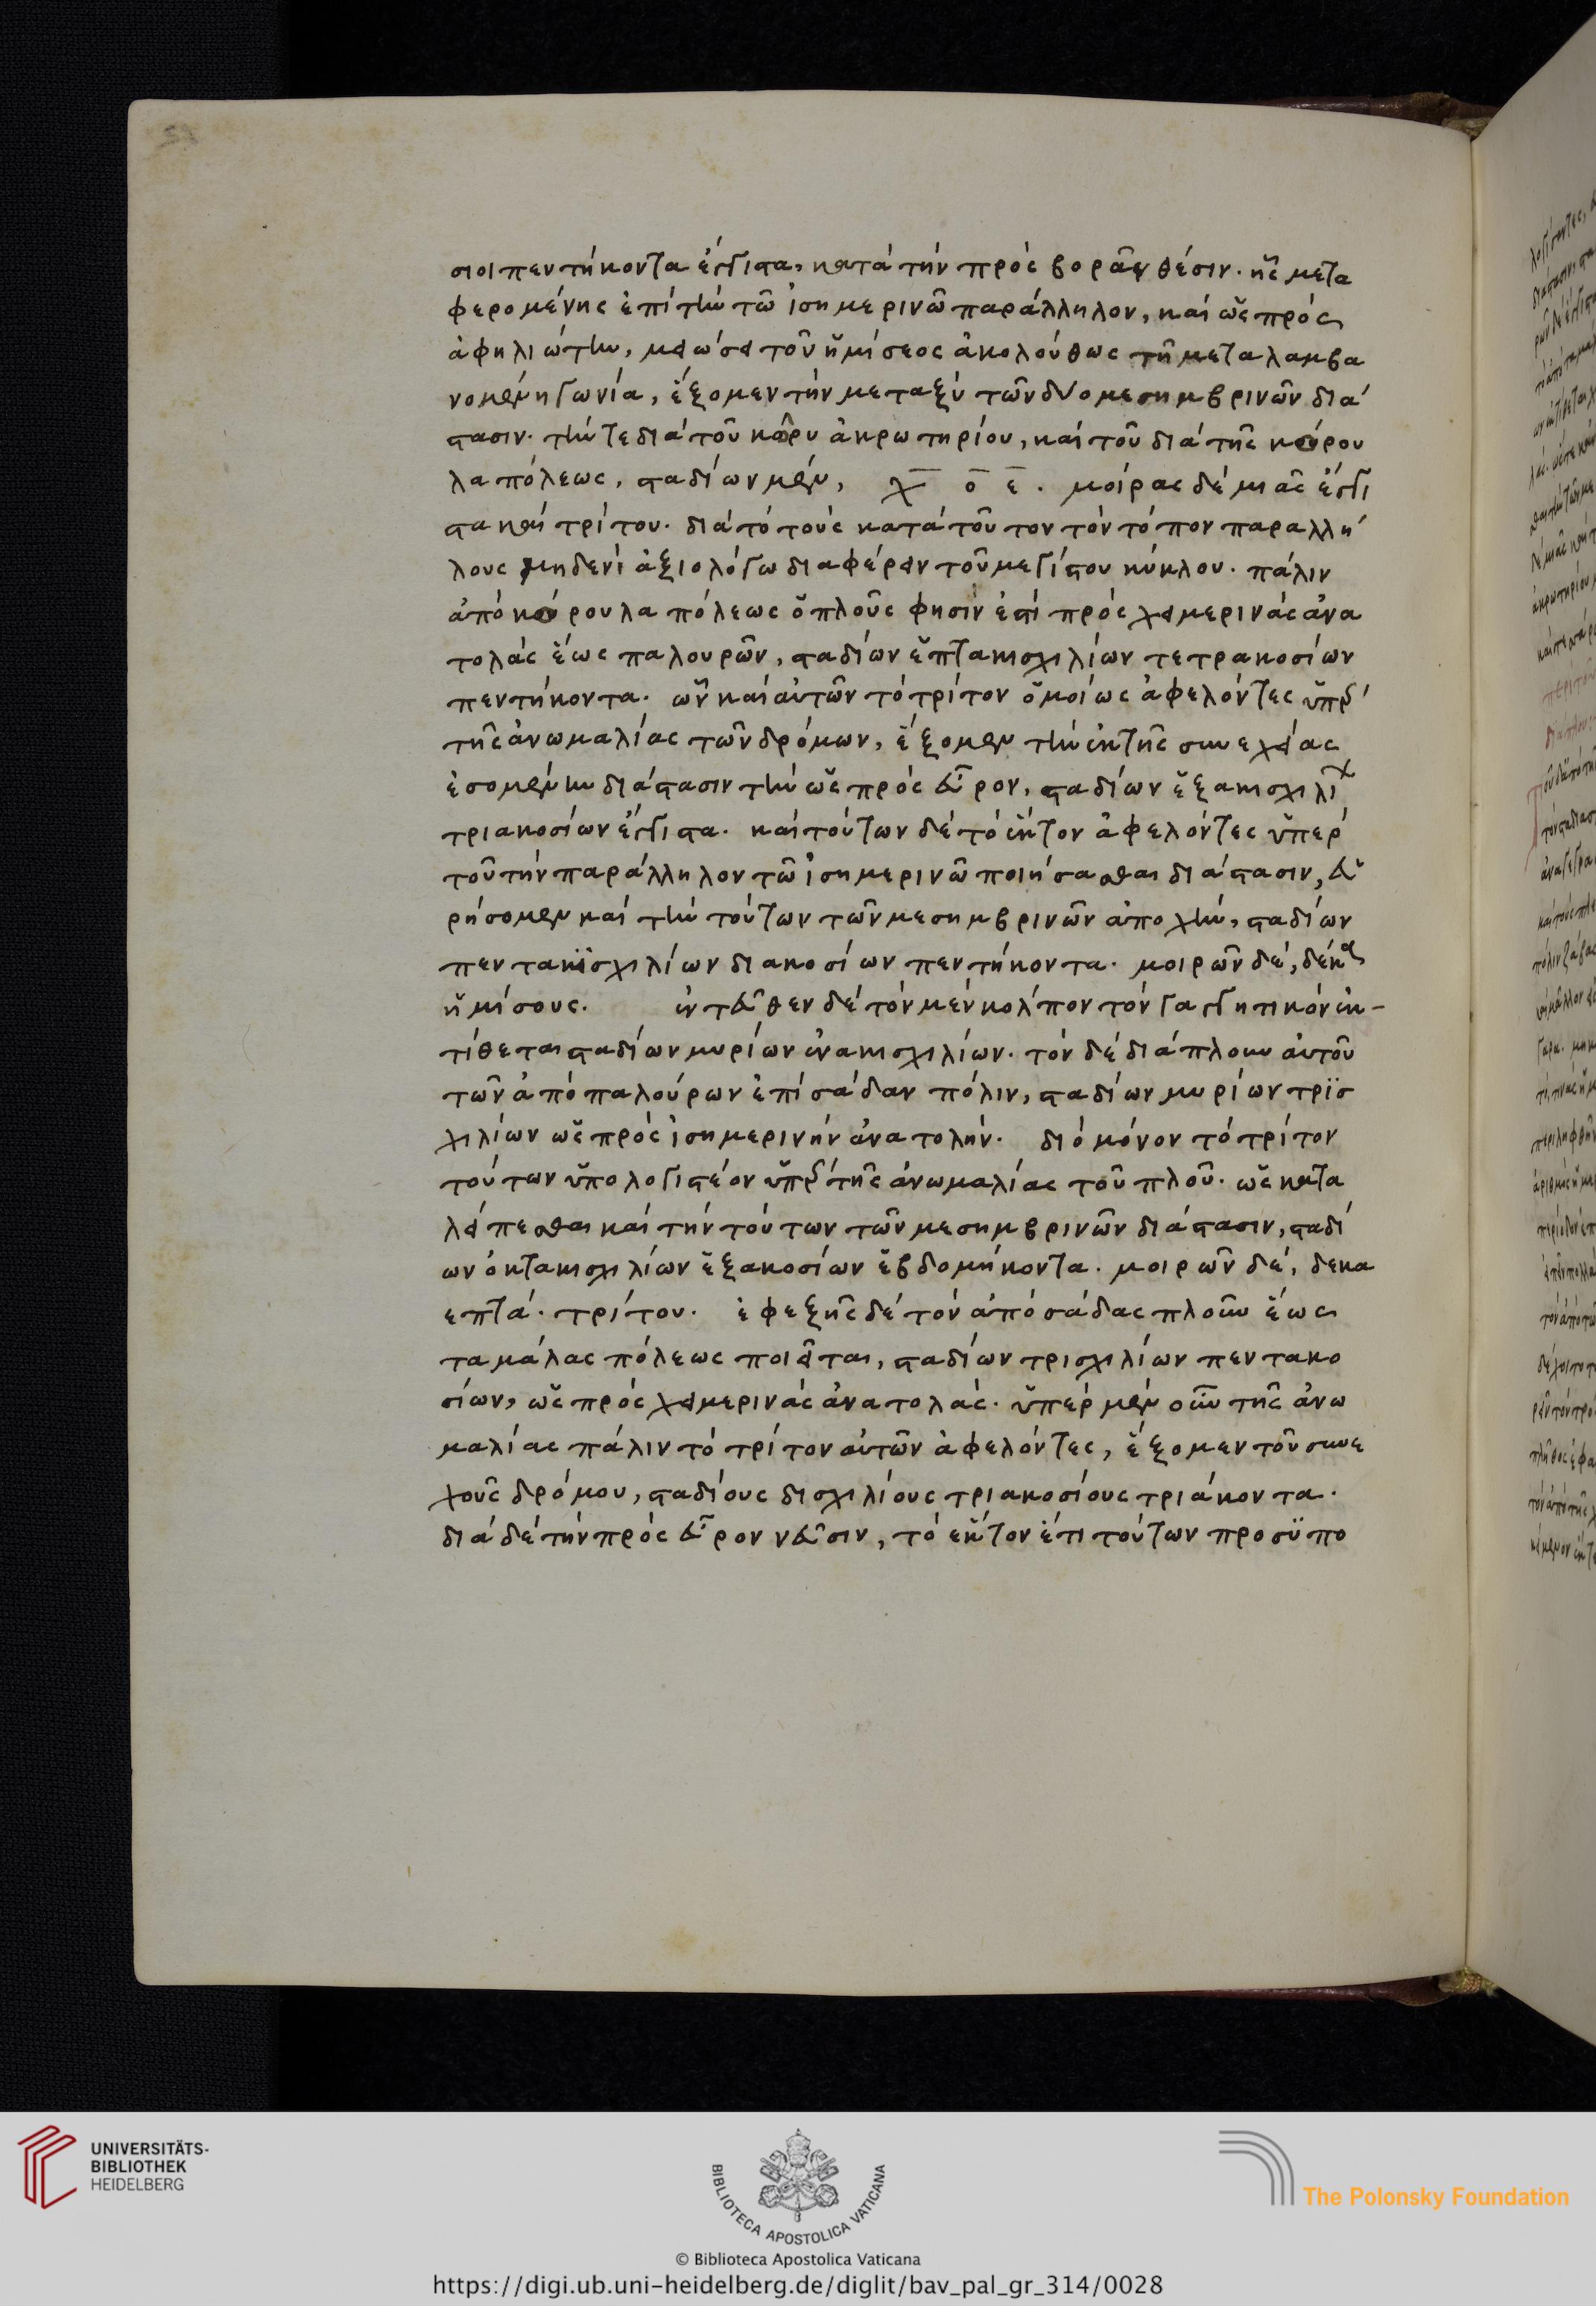 σιοι πεντήκοντα ἔγγιστα, κατὰ τὴν πρὸς βορᾶν θέσιν. ἧς μετα
φερομένης ἐπὶ τὴν τῶ ἰσημερινῶ παράλληλον, καὶ ὡς πρὸς
ἀφηλιώτην, μειώσει τοῦ ἡμίσεος ἀκολούθως τῆ μεταλαμβα
νομένη γωνία, ἕξομεν τὴν μεταξὺ τῶν δύο μεσημβρινῶν διά
στασιν. τήν τε διὰ τοῦ κῶρυ ἀκρωτηρίου, καὶ τοῦ διὰ τῆς κούρου
λα πόλεως, σταδίων μὲν, χ ο ε. μοίρας δὲ μιᾶς ἔγγι
στα καὶ τρίτου. διὰ τὸ τοὺς κατὰ τοῦτον τὸν τόπον παραλλή
λους μηδενὶ ἀξιολόγω διαφέρειν τοῦ μεγίστου κύκλου. πάλιν
ἀπὸ κούρουλα πόλεως ὁ πλοῦς φησὶν ἐστὶ πρὸς χειμερινὰς ἀνα
τολὰς ἕως παλουρῶν, σταδίων ἑπτακισχιλίων τετρακοσίων
πεντήκοντα. ὧν καὶ αὐτῶν τὸ τρίτον ὁμοίως ἀφελόντες ὑπὲρ
τῆς ἀνωμαλίας τῶν δρόμων, ἕξομεν τὴν ἐκ τῆς συνεχείας
ἐσομένην διάστασιν τὴν ὡς πρὸς εὖρον, σταδίων ἑξακισχιλίων
τριακοσίων ἔγγιστα. καὶ τούτων δὲ τὸ ἕκτον ἀφελόντες ὑπὲρ
τοῦ τὴν παράλληλον τῶ ἰσημερινῶ ποιήσασθαι διάστασιν, εὑ
ρήσομεν καὶ τὴν τούτων τῶν μεσημβρινῶν ἀποχὴν, σταδίων
πεντακισχιλίων διακοσίων πεντήκοντα. μοιρῶν δὲ, δέκα
ἡμίσους. ἐντεῦθεν δὲ τὸν μὲν κόλπον τὸν γαγγητικὸν ἐκ-
τίθεται σταδίων μυρίων ἐνακισχιλίων. τὸν δὲ διάπλουν αὐτοῦ
τῶν ἀπὸ παλούρων ἐπὶ σάδαν πόλιν, σταδίων μυρίων τρϊσ
χιλίων ὡς πρὸς ἰσημερινὴν ἀνατολήν. διὸ μόνον τὸ τρίτον
τούτων ὑπολογιστέον ὑπὲρ τῆς ἀνωμαλίας τοῦ πλοῦ. ὡς κατα
λείπεσθαι καὶ τὴν τούτων τῶν μεσημβρινῶν διάστασιν, σταδί
ων ὀκτακισχιλίων ἑξακοσίων ἑβδομήκοντα. μοιρῶν δὲ, δεκα
επτά. τρίτου. ἐφεξῆς δὲ τὸν ἀπὸ σάδας πλοῦν ἕως
ταμάλας πόλεως ποιεῖται, σταδίων τρισχιλίων πεντακο
σίων, ὡς πρὸς χειμερινὰς ἀνατολάς. ὑπὲρ μὲν οὖν τῆς ἀνω
μαλίας πάλιν τὸ τρίτον αὐτῶν ἀφελόντες, ἕξομεν τοῦ συνε
χοῦς δρόμου, σταδίους δισχιλίους τριακοσίους τριάκοντα.
διὰ δὲ τὴν πρὸς εὖρον νεῦσιν, τὸ ἕκτον ἔτι τούτων προσϋπο
UNIVERSITÄTS-
BIBLIOTHEK
HEIDELBERG
BIBLIOTECA APOSTOLICA VATICANA
The Polonsky Foundation
© Biblioteca Apostolica Vaticana
https://digi.ub.uni-heidelberg.de/diglit/bav_pal_gr_314/0028